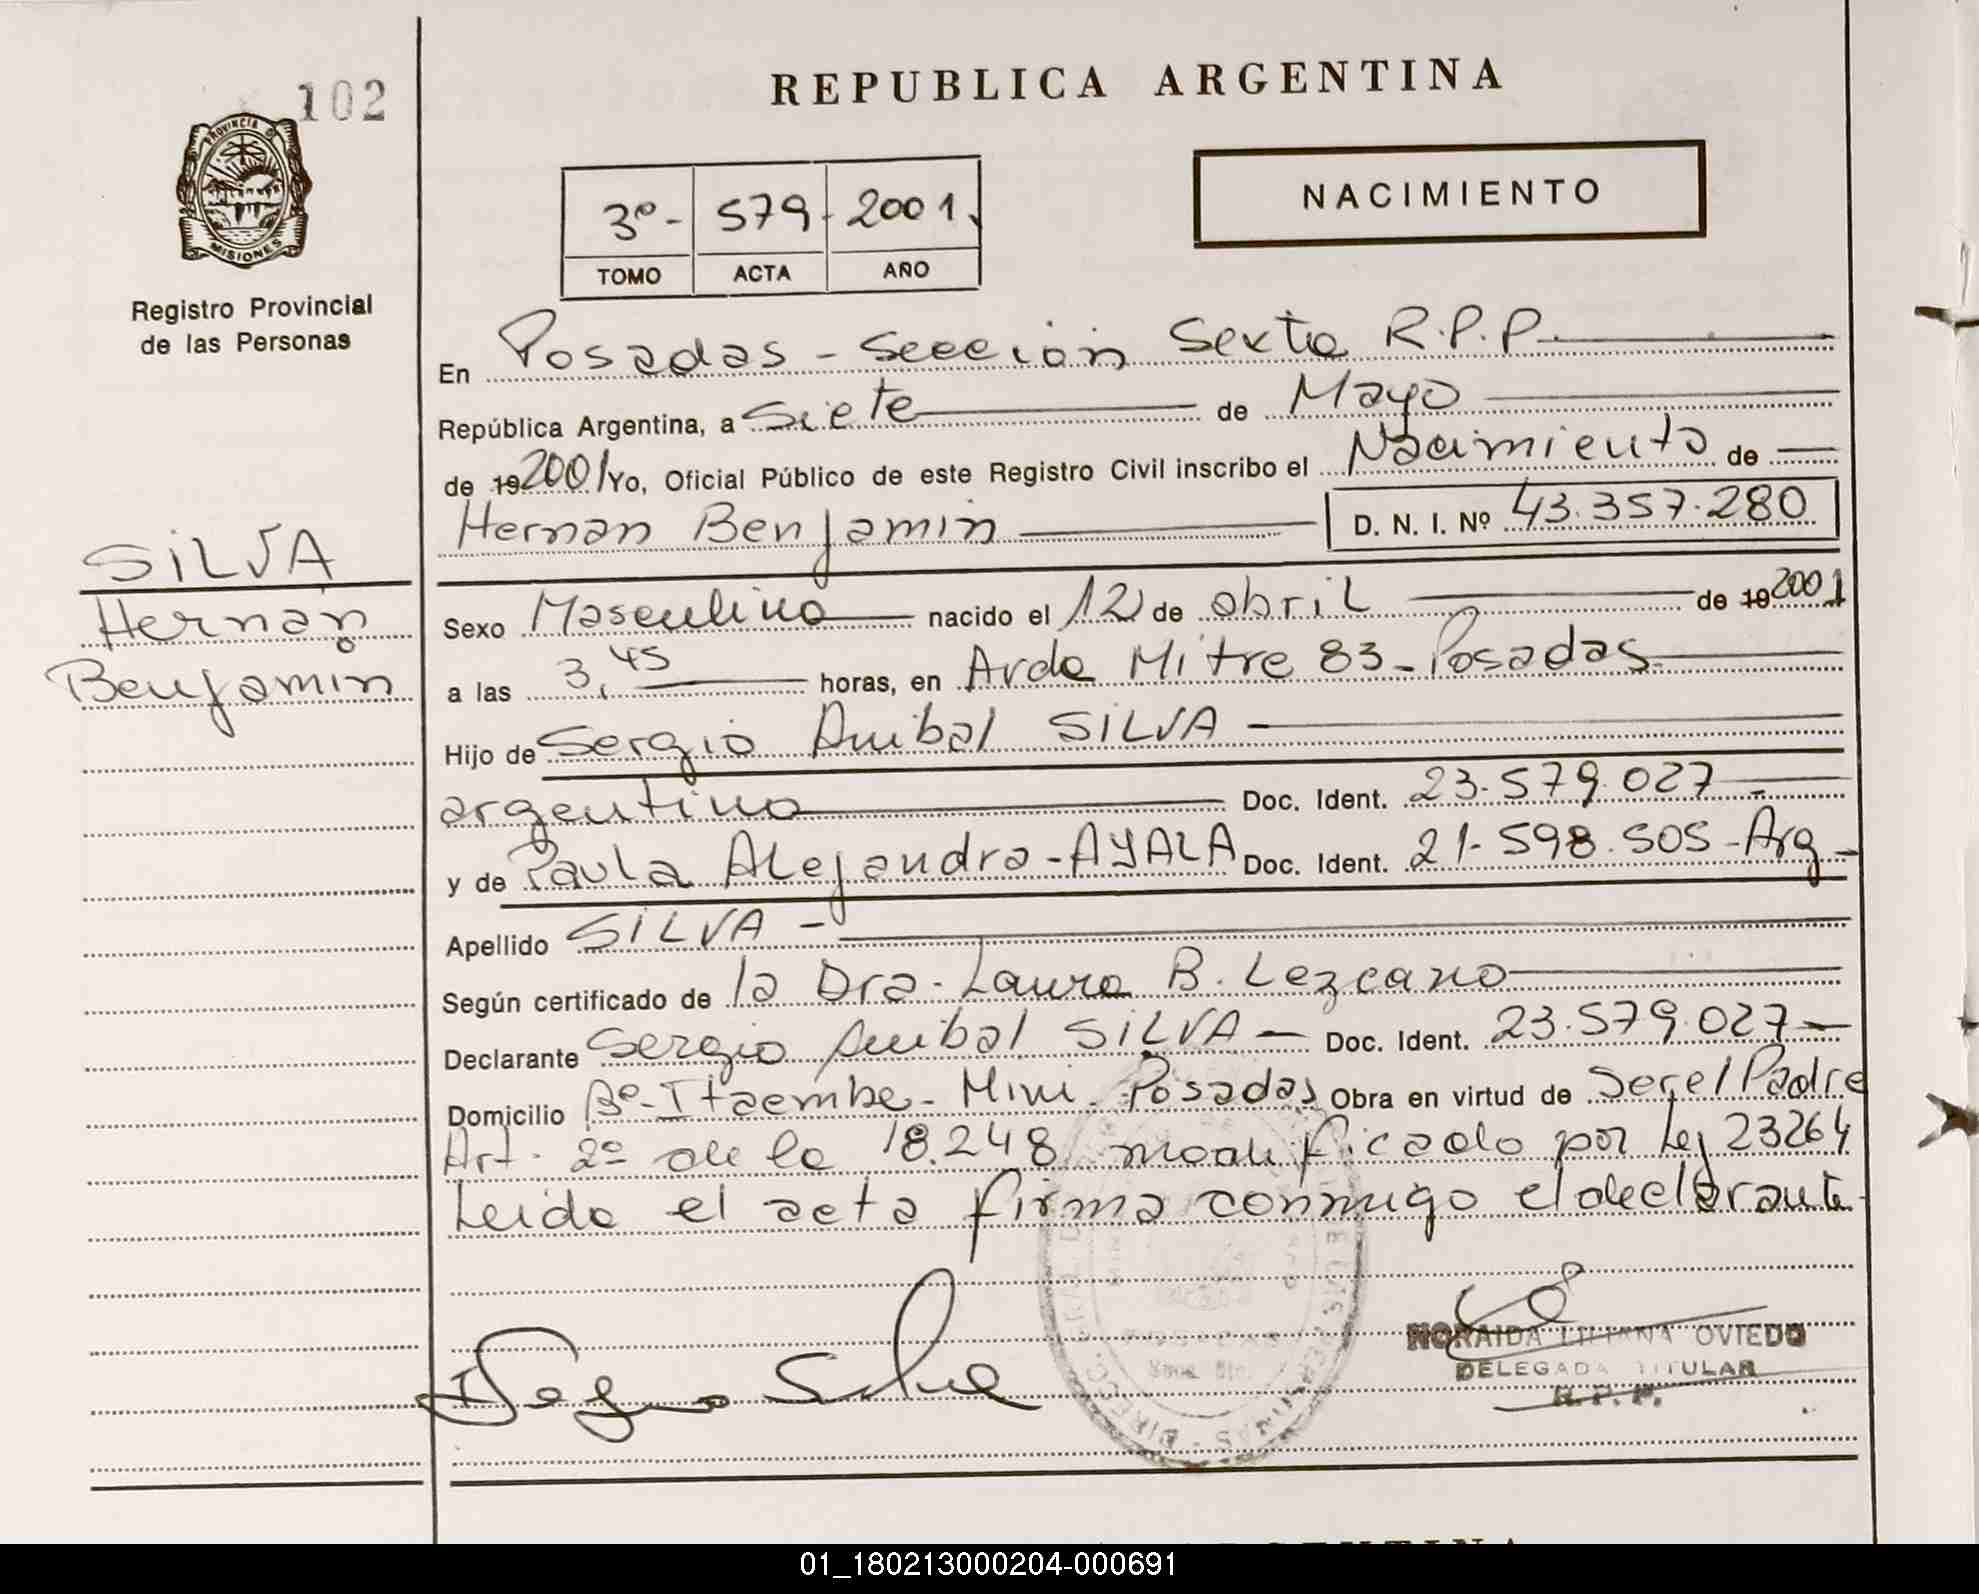 102
PROVINCIA DE
MISIONES
Registro Provincial
de las Personas
SILVA
Hernán
Benjamín
REPUBLICA ARGENTINA
NACIMIENTO
3º- 579- 2001.
TOMO ACTA AÑO
En Posadas - Sección Sexta R.P.P.
República Argentina, a Siete de Mayo
de 19 2001 Yo, Oficial Público de este Registro Civil inscribo el Nacimiento de
Hernan Benjamín D. N. I. Nº 43.357.280
Sexo Masculino nacido el 12 de abril de 19 2001
a las 3,45 horas, en Avda Mitre 83 - Posadas
Hijo de Sergio Anibal SILVA
argentino Doc. Ident. 23.579.027
y de Paula Alejandra - AYALA Doc. Ident. 21.598.505 - Arg
Apellido SILVA
Según certificado de la Dra. Laura B. Lezcano
Declarante Sergio Anibal SILVA Doc. Ident. 23.579.027
Domicilio Bº - Itaembe - Mini - Posadas Obra en virtud de Ser el Padre
Art. 2º de la 18.248 modificado por Ley 23264
Leida el acta firma conmigo el declarante
NORAIDA LILIANA OVIEDO
DELEGADA TITULAR
R.P.P.
01_180213000204-000691